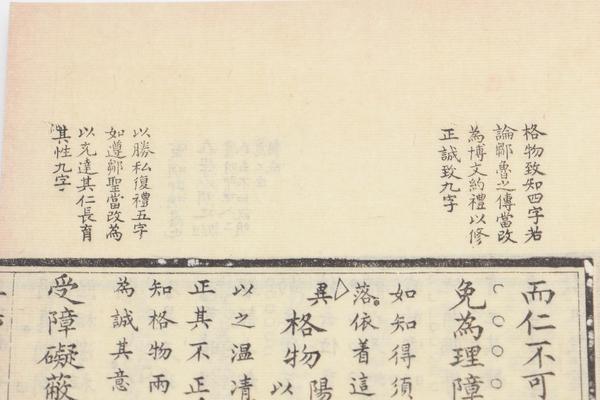 格物致知四字若
論鄒曹之傳當改
為博文約禮以修
正誠致九字
以勝私復禮五字
如遵鄒聖當改為
以充達其仁長育
其性九字
而仁不可
免為理障
如知得須
落。依着這
異
格物陽
以
以之温凊
正其不正
知格物兩
為誠其意
受障礙蔽